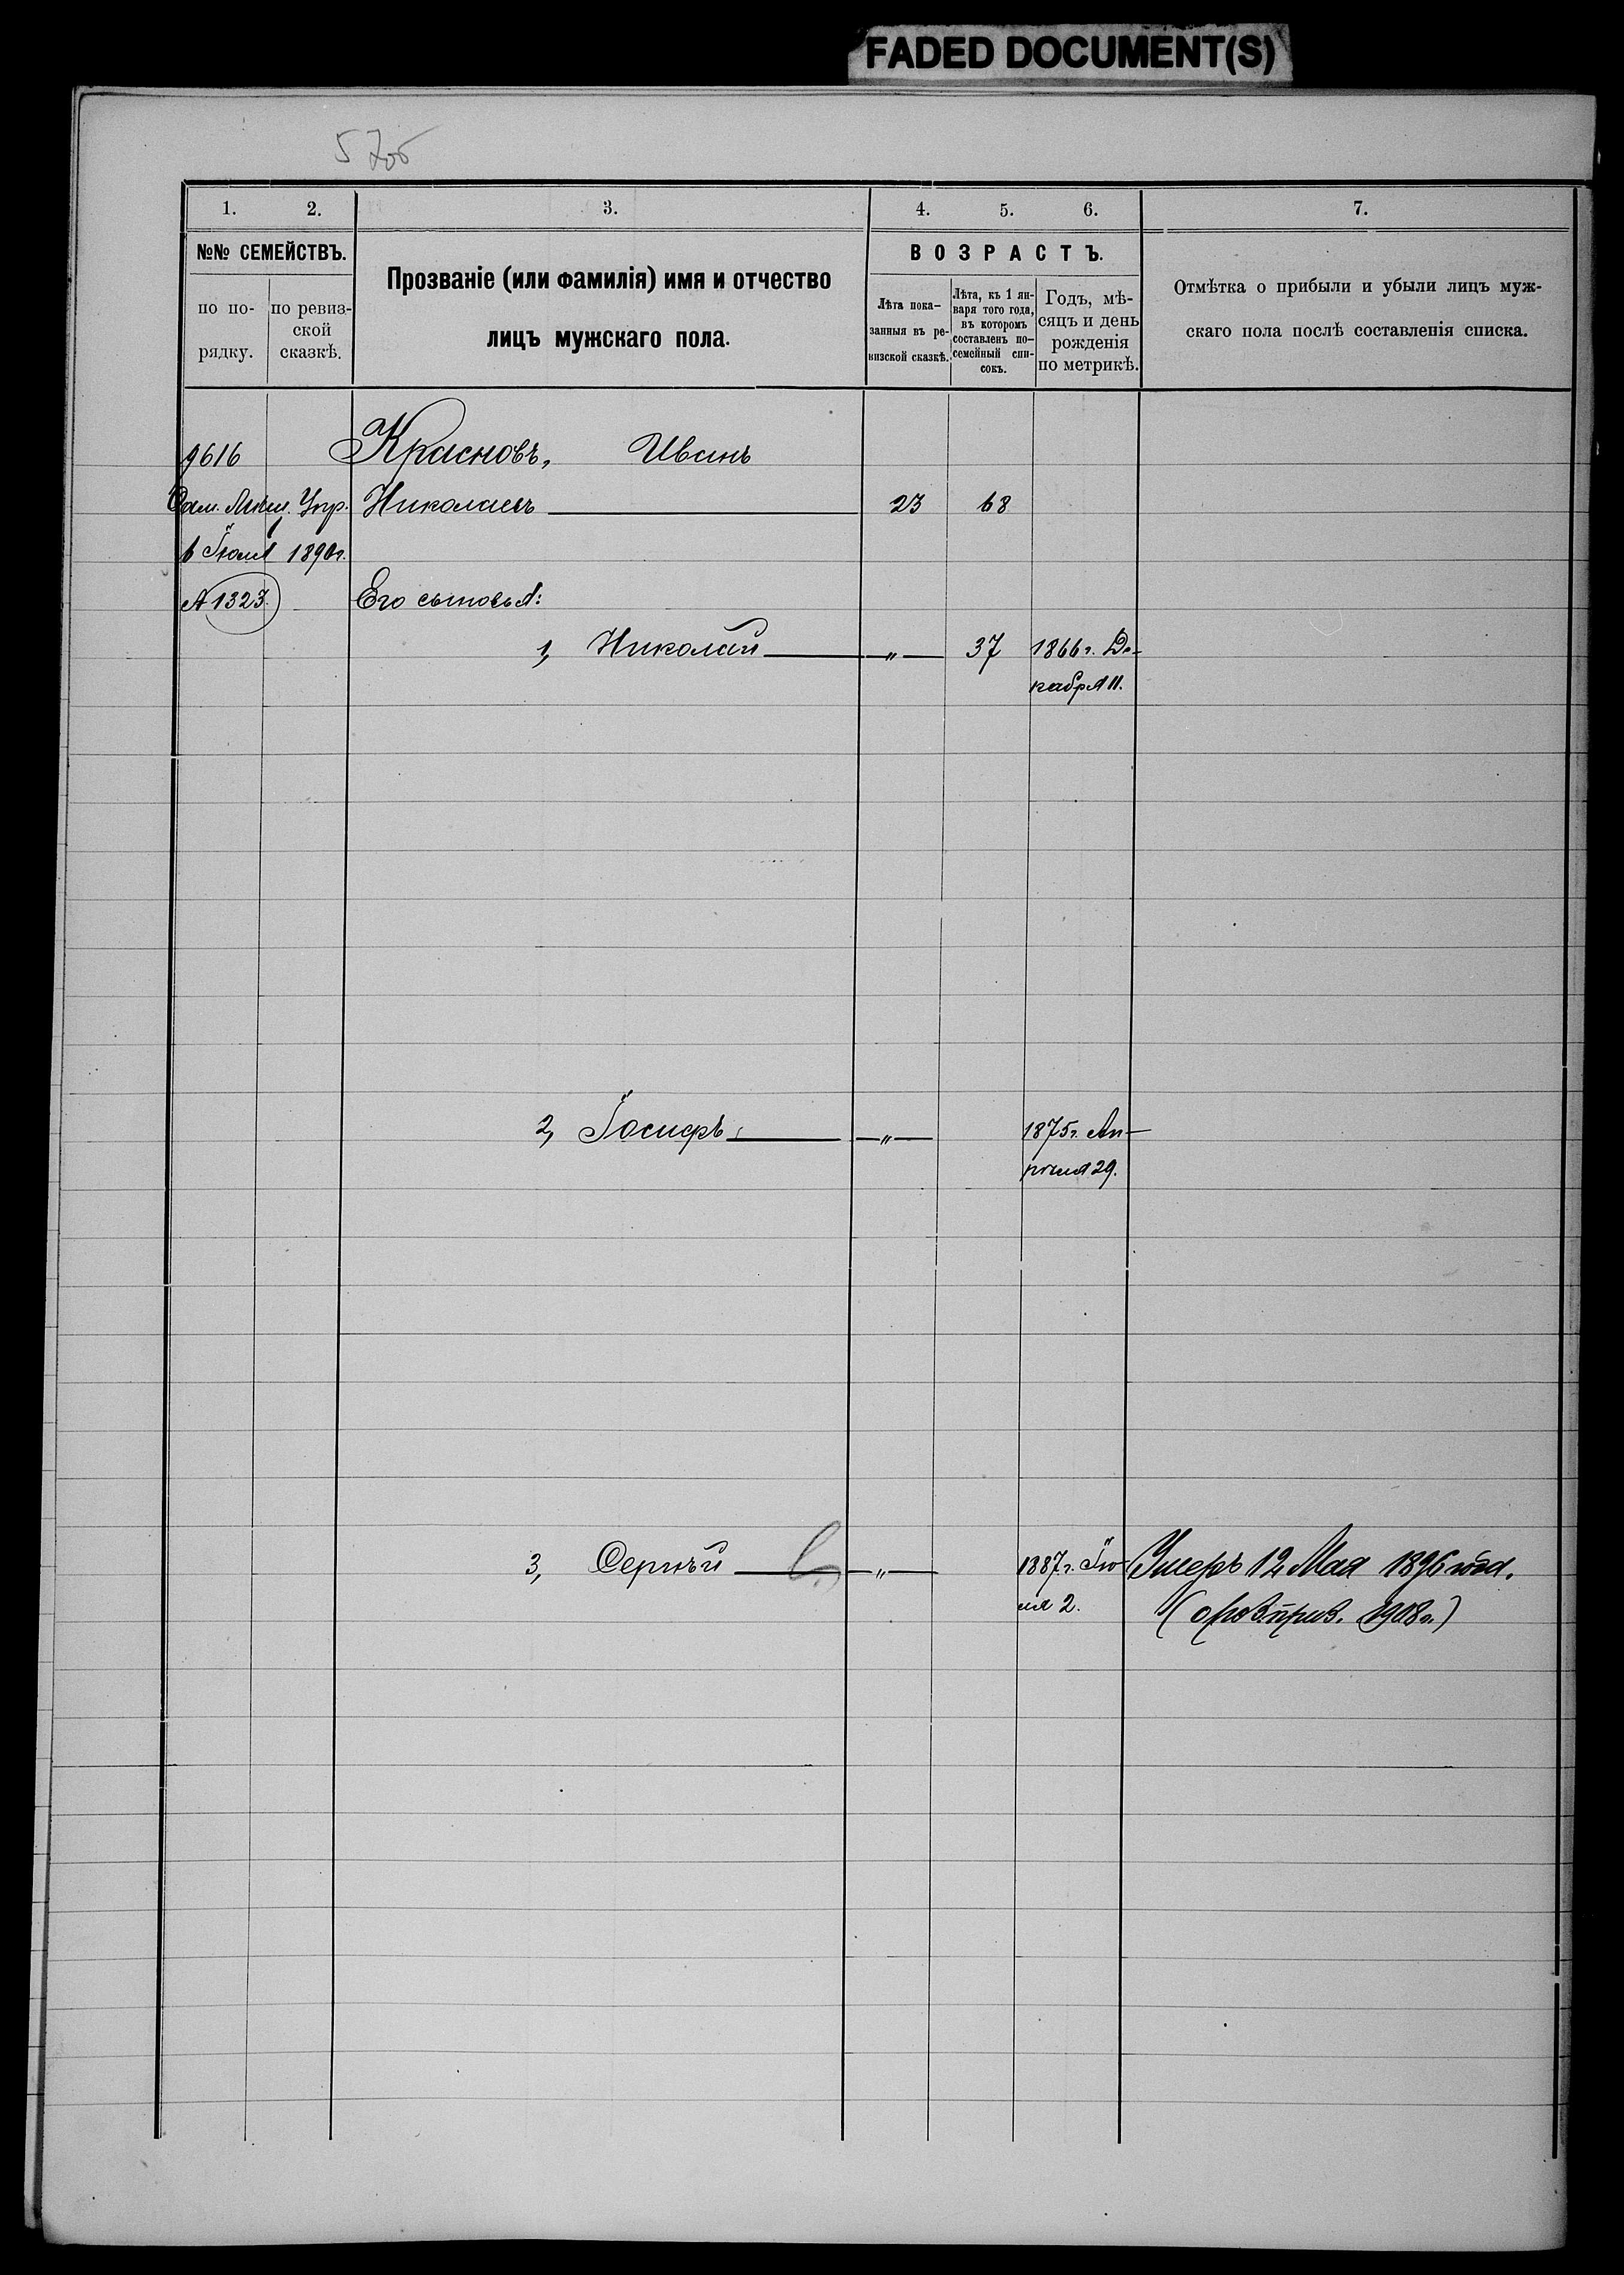 FADED DOCUMENT(S)
57об
1. 2. 3. 4. 5. 6. 7.
№№ СЕМЕЙСТВЪ.
по по-
рядку.
по ревиз-
ской
сказкѣ.
Прозваніе (или фамилія) имя и отчество
лицъ мужскаго пола.
ВОЗРАСТЪ.
Лѣта пока-
занныя въ ре-
визской сказкѣ.
Лѣта, къ 1 ян-
варя того года,
въ которомъ
составленъ по-
семейный спи-
сокъ.
Годъ, мѣ-
сяцъ и день
рожденія
по метрикѣ.
Отмѣтка о прибыли и убыли лицъ муж-
скаго пола послѣ составленія списка.
9616 Красновъ, Иванъ
Сам. Мѣщ. Упр. Николаевъ 23 68
6 Іюля 1890г.
№1323. Его сыновья:
1, Николай " 37 1866г. Де-
кабря 11.
2, Іосифъ " 1875г. Ап-
рѣля 29.
3, Сергѣй " 1887г. Ію- Умеръ 12 Мая 1896 года.
ля 2. ( приз. 1908г.)